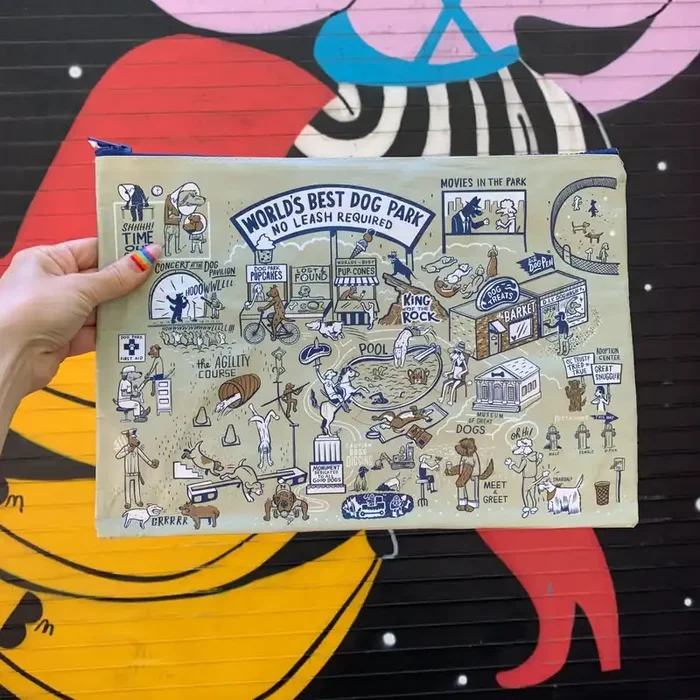 WORLD'S BEST DOG PARK
NO LEASH REQUIRED
MOVIES IN THE PARK
SHHH!
TIME
OUT
CONCERT AT THE DOG
PAVILION
HOOOWWLLLL
DOG PARK
PUPCAKES
LOST &
FOUND
PUP-CONES
KING
OF THE
ROCK
DOG
TREATS
the BARKET
DOG PARK
FIRST AID
the AGILITY
COURSE
POOL
MUSEUM
OF GREAT
DOGS
ADOPTION
CENTER
TRUSTY
TRIED &
TRUE
GREAT
SNUGGLER
OH HI!
MONUMENT
DEDICATED
TO ALL
GOOD DOGS
MEET
&
GREET
GRRRRR
m
m